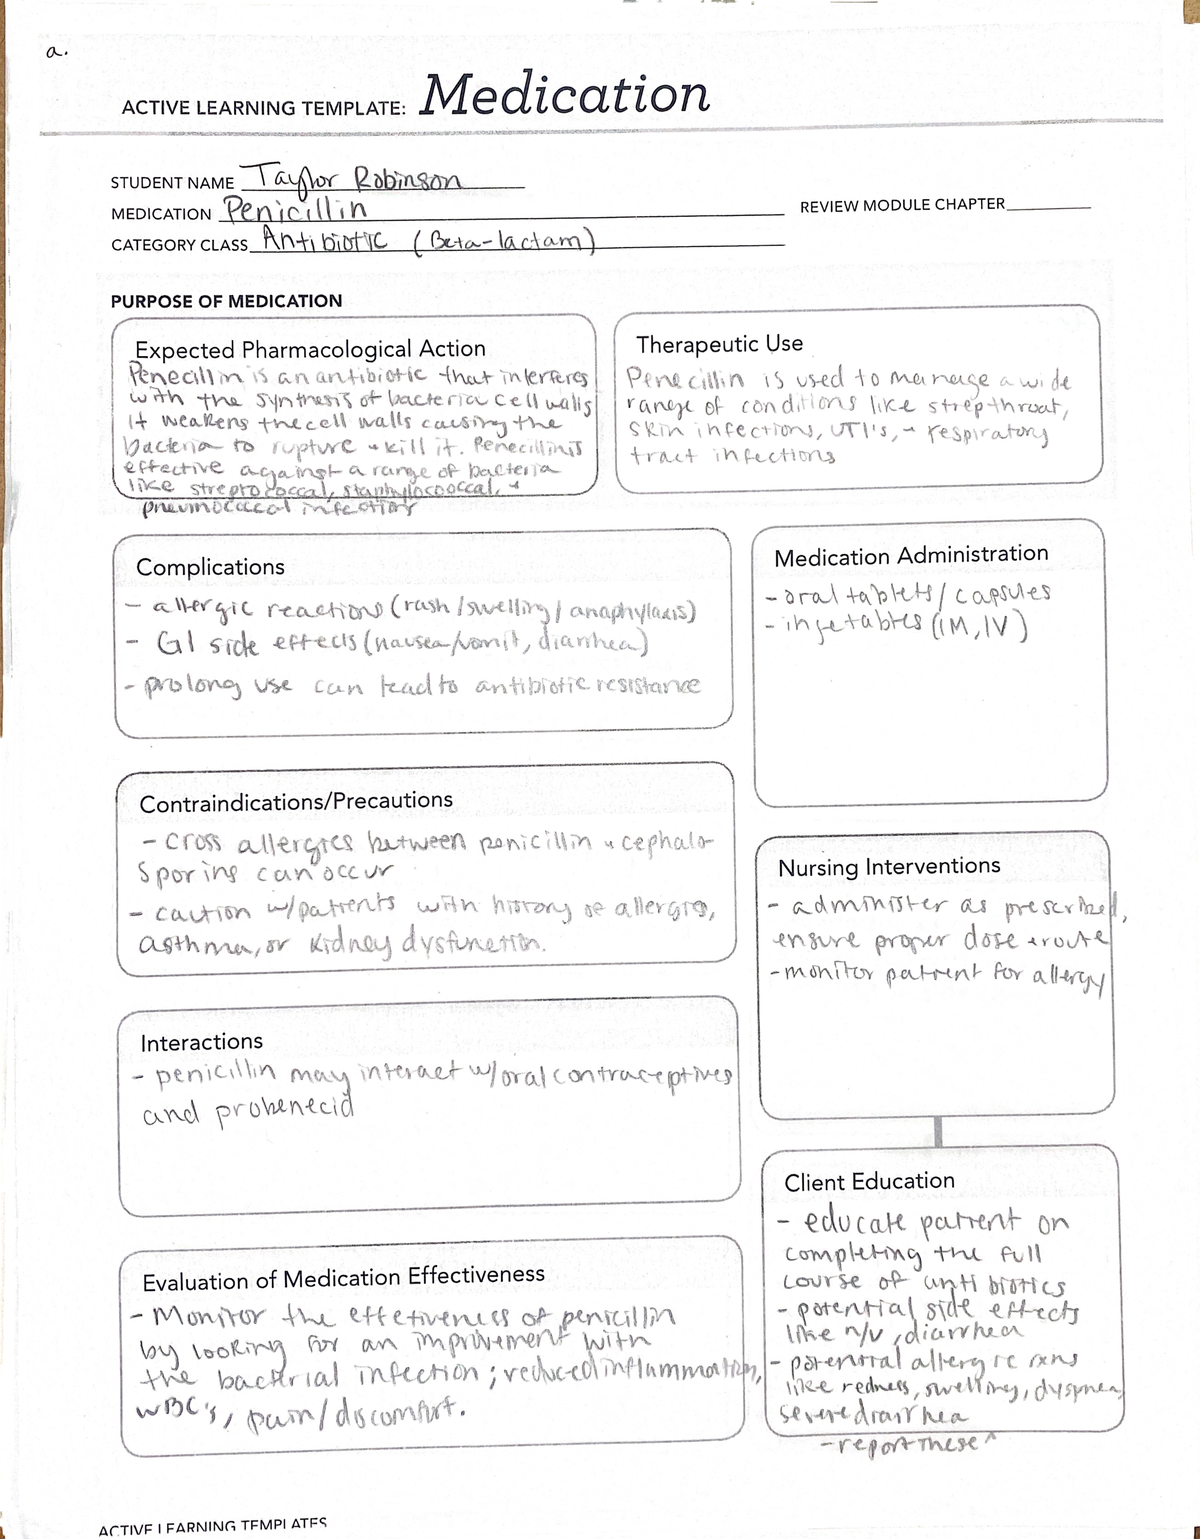 a.
ACTIVE LEARNING TEMPLATE: Medication
STUDENT NAME Taylor Robinson
MEDICATION Penicillin
REVIEW MODULE CHAPTER
CATEGORY CLASS Antibiotic (Beta-lactam)
PURPOSE OF MEDICATION
Expected Pharmacological Action
Penecillin is an antibiotic that interferes
with the synthesis of bacteria cell walls
it weakens the cell walls causing the
bacteria to rupture + kill it. Penecillin is
effective against a range of bacteria
like streptococcal, staphylococcal, +
pneumococcal infections
Therapeutic Use
Penecillin is used to manage a wide
range of conditions like strep throat,
skin infections, UTI's, + respiratory
tract infections
Complications
- allergic reactions (rash/swelling/anaphylaxis)
- GI side effects (nausea/vomit, diarrhea)
- prolong use can lead to antibiotic resistance
Medication Administration
- oral tablets/ capsules
- injetables (IM, IV)
Contraindications/Precautions
- cross allergies between penicillin + cephalo-
sporins can occur
- caution w/patients with history of allergies,
asthma, or kidney dysfunction.
Nursing Interventions
- administer as prescribed,
ensure proper dose + route
- monitor patient for allergy
Interactions
- penicillin may interact w/oral contraceptives
and probenecid
Client Education
- educate patient on
completing the full
course of antibiotics
- potential side effects
like n/v, diarrhea
- potential allergic rxns
like redness, swelling, dyspnea,
severe diarrhea
- report these ^
Evaluation of Medication Effectiveness
- Monitor the effetiveness of penicillin
by looking for an improvement with
the bacterial infection; reduced inflammation,
WBC's, pain/discomfort.
ACTIVE LEARNING TEMPLATES